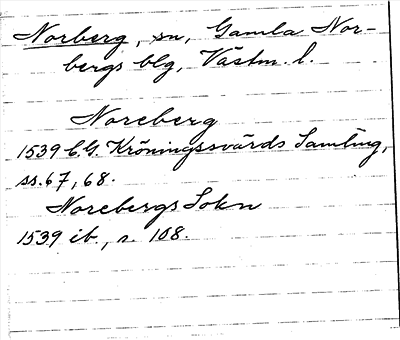 Norberg, sn, Gamla Nor-
bergs blg, Västm. l.
Noreberg
1539 C.G. Kröningssvärds Samling,
ss. 67, 68.
Norebergs Sokn
1539 ib., s. 108.